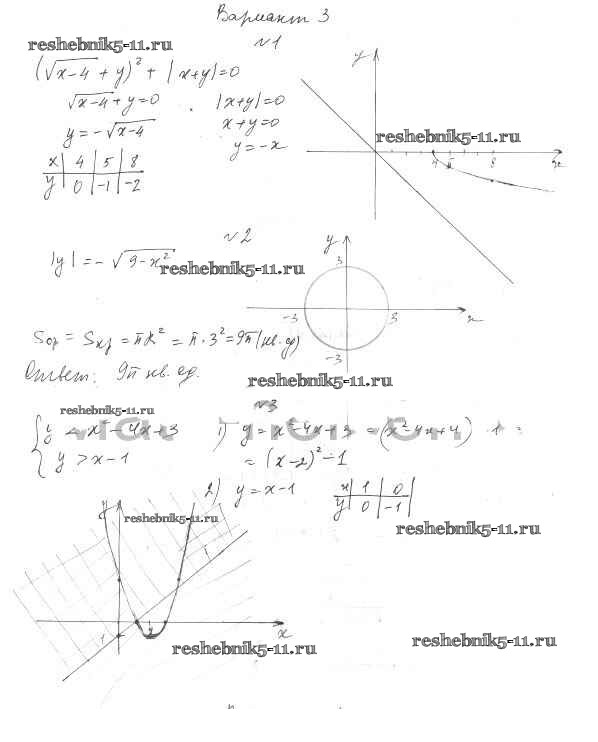 Вариант 3
reshebnik5-11.ru
№1
(√x-4 + y)² + |x+y|=0
√x-4 + y=0 . |x+y|=0
y=-√x-4 x+y=0
y=-x
x | 4 | 5 | 8
y | 0 | -1 | -2
y
reshebnik5-11.ru
4 5 8 x
№2
|y| = -√9-x²
reshebnik5-11.ru
y
3
-3 3 x
-3
Sф = Sкр = πR² = π·3² = 9π (кв.ед)
Ответ: 9π кв.ед.
reshebnik5-11.ru
№3
reshebnik5-11.ru
{ y < x² - 4x + 3
{ y > x - 1
1) y = x² - 4x + 3 = (x² - 4x + 4) - 1 =
= (x-2)² - 1
2) y = x - 1
x | 1 | 0
y | 0 | -1
reshebnik5-11.ru
y
reshebnik5-11.ru
x
reshebnik5-11.ru
reshebnik5-11.ru